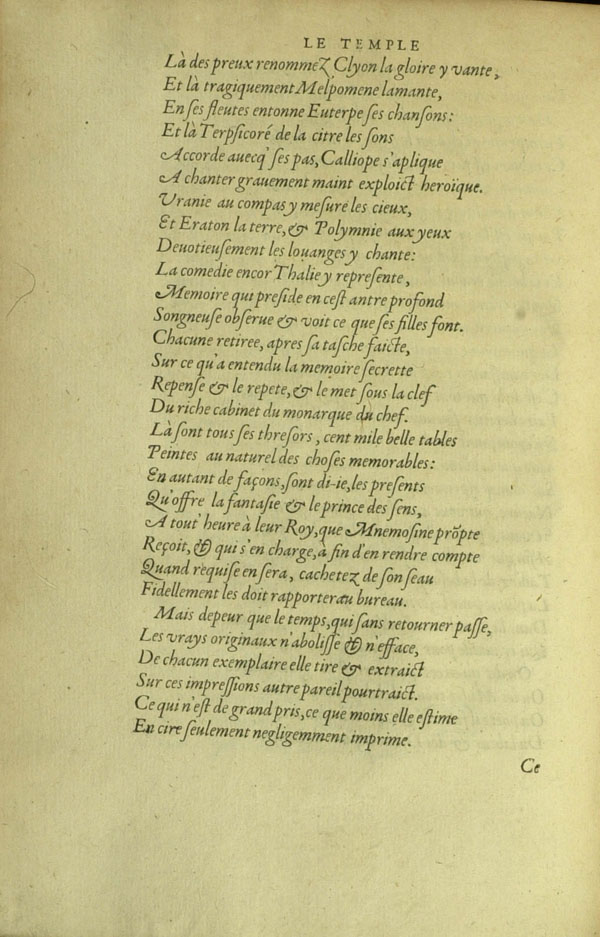 LE TEMPLE
Là des preux renommeζ Clyon la gloire y vante,
Et là tragiquement Melpomene lamante,
En ſes fleutes entonne Euterpe ſes chanſons:
Et là Terpſicoré de la citre les ſons
Accorde auecq' ſes pas, Calliope s'aplique
A chanter grauement maint exploict heroïque.
Vranie au compas y meſure les cieux,
Et Eraton la terre, & Polymnie aux yeux
Deuotieuſement les louanges y chante:
La comedie encor Thalie y repreſente,
Memoire qui preſide en ceſt antre profond
Songneuſe obſerue & voit ce que ſes filles font.
Chacune retiree, apres ſa taſche faicte,
Sur ce qu'a entendu la memoire ſecrette
Repenſe & le repete, & le met ſous la clef
Du riche cabinet du monarque du chef.
Là ſont tous ſes threſors, cent mile belle tables
Peintes au naturel des choſes memorables:
En autant de façons, ſont di-ie, les preſents
Qu'offre la fantaſie & le prince des ſens,
A tout' heure à leur Roy, que Mnemoſine prõpte
Reçoit, & qui s'en charge, a fin d'en rendre compte
Quand requiſe en ſera, cacheteζ de ſon ſeau
Fidellement les doit rapporter au bureau.
Mais depeur que le temps, qui ſans retourner paſſe,
Les vrays originaux n'aboliſſe & n'efface,
De chacun exemplaire elle tire & extraict
Sur ces impreſſions autre pareil pourtraict.
Ce qui n'eſt de grand pris, ce que moins elle eſtime
En cire ſeulement negligemment imprime.
Ce